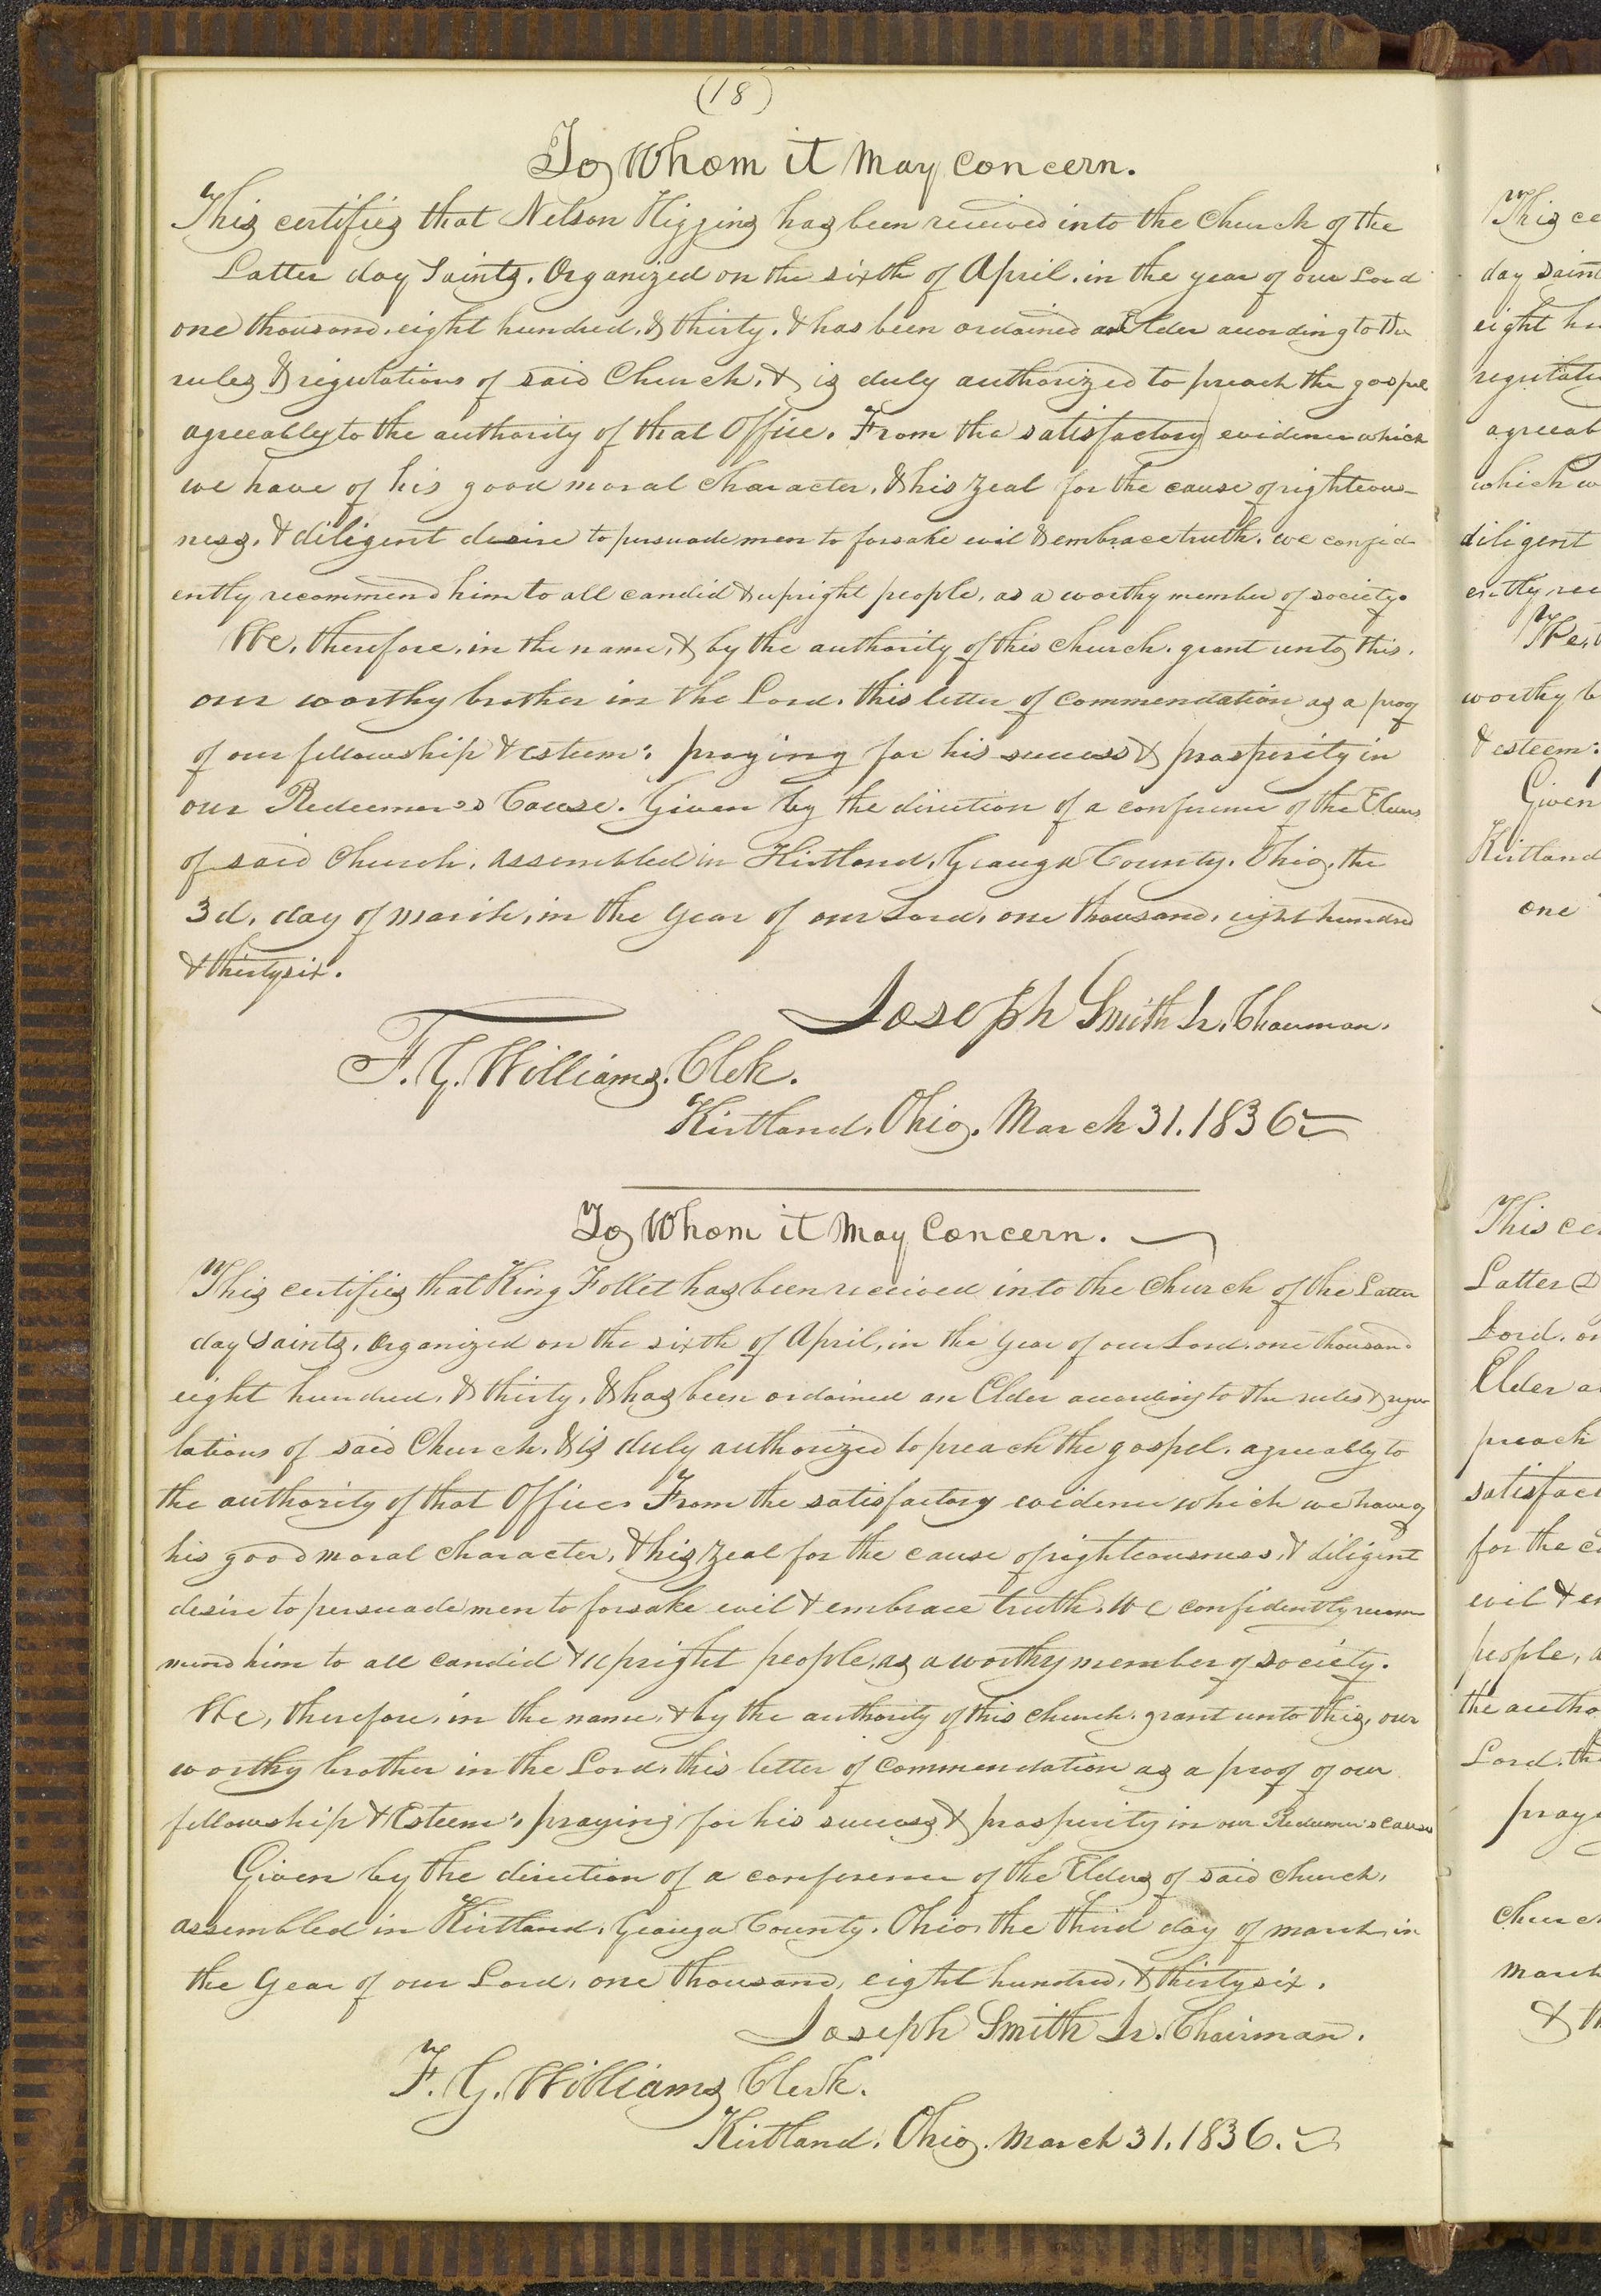 (18)
To Whom it May Concern.
This certifies that Nelson Higgins has been received into the Church of the
Latter day Saints. Organized on the sixth of April. in the year of our Lord
one thousand. eight hundred. & thirty. & has been ordained an Elder according to the
rules & regulations of said Church, & is duly authorized to preach the gospel
agreeably to the authority of that Office. From the satisfactory evidence which
we have of his good moral character, & his zeal for the cause of righteous-
ness. & diligent desire to persuade men to forsake evil & embrace truth. we confid-
ently recommend him to all candid & upright people, as a worthy member of society.
We, therefore, in the name, & by the authority of this church. grant unto this,
our worthy brother in the Lord. this letter of commendation as a proof
of our fellowship & esteem: praying for his success & prosperity in
our Redeemer's Cause. Given by the direction of a conference of the Elders
of said Church. assembled in Kirtland, Geauga County. Ohio, the
3d. day of march, in the year of our Lord, one thousand, eight hundred
& thirty six.
Joseph Smith Jr. Chairman.
F. G. Williams. Clek.
Kirtland. Ohio. March 31. 1836
To Whom it May Concern.
This certifies that King Follet has been received into the Church of the Latter
day Saints. Organized on the sixth of April, in the year of our Lord. one thousand
eight hundred, & thirty, & has been ordained an Elder according to the rules & regu
lations of said Church. & is duly authorized to preach the gospel. agreeably to
the authority of that Office. From the satisfactory evidence which we have of
his good moral character, & his zeal for the cause of righteousness, & diligent
desire to persuade men to forsake evil & embrace truth. We confidently recom
mend him to all candid & upright people, as a worthy member of society.
We, therefore, in the name, & by the authority of this church. grant unto this, our
worthy brother in the Lord. this letter of commendation as a proof of our
fellowship & Esteem; praying for his success & prosperity in our Redeemer's cause
Given by the direction of a conference of the Elders of said church,
assembled in Kirtland, Geauga County. Ohio, the third day of march, in
the year of our Lord, one thousand, eight hundred, & thirty six.
Joseph Smith Jr. Chairman.
F. G. Williams Clerk.
Kirtland. Ohio. March 31. 1836.
This ce
day saint
eight hu
regulati
agreeab
which w
diligent
ently rec
We, t
worthy b
& esteem:
Given
Kirtland
one
This ce
Latter D
Lord. on
Elder a
preach
satisfac
for the c
evil & e
people, a
the autho
Lord. th
pray
church
march
& th